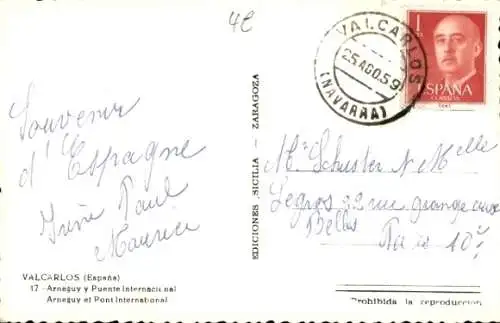 4€
VALCARLOS
25 AGO.59
(NAVARRA)
1
ESPAÑA
CORREOS
Souvenir
d'Espagne
Irène Paul
Maurice
EDICIONES SICILIA - ZARAGOZA
Mr Schuster N Melle
Legros 22 rue grange aux
Belles
Paris 10e
VALCARLOS (España)
17 - Arneguy y Puente Internacional
Arneguy et Pont International
Prohibida la reproduccion